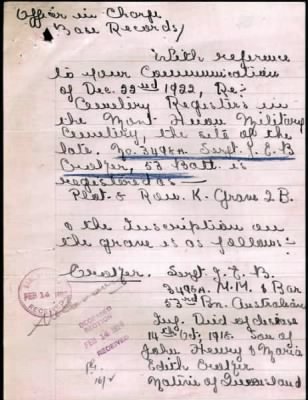 Officer in Charge
Base Records/
With reference
to your Communication
of Dec. 22nd 1922, Re:-
Cemetery Registers in
the Mont Huon Military
Cemetery, the site of the
late. No. 3495A. Sergt. J. E. B
53 Batt. is
registered as —
Plot & Row. K. Grave 2 B.
& the Inscription on
the grave is as follows:-
Sergt. J. E. B.
3495A. M.M. & Bar
53nd Bn. Australian
Inf. Died of disease
14th Oct, 1918. Son of
John Henry & Maria
Edith
Native of Queensland
FEB 14
DECEASED
SECTION
FEB
RECEIVED
16/2